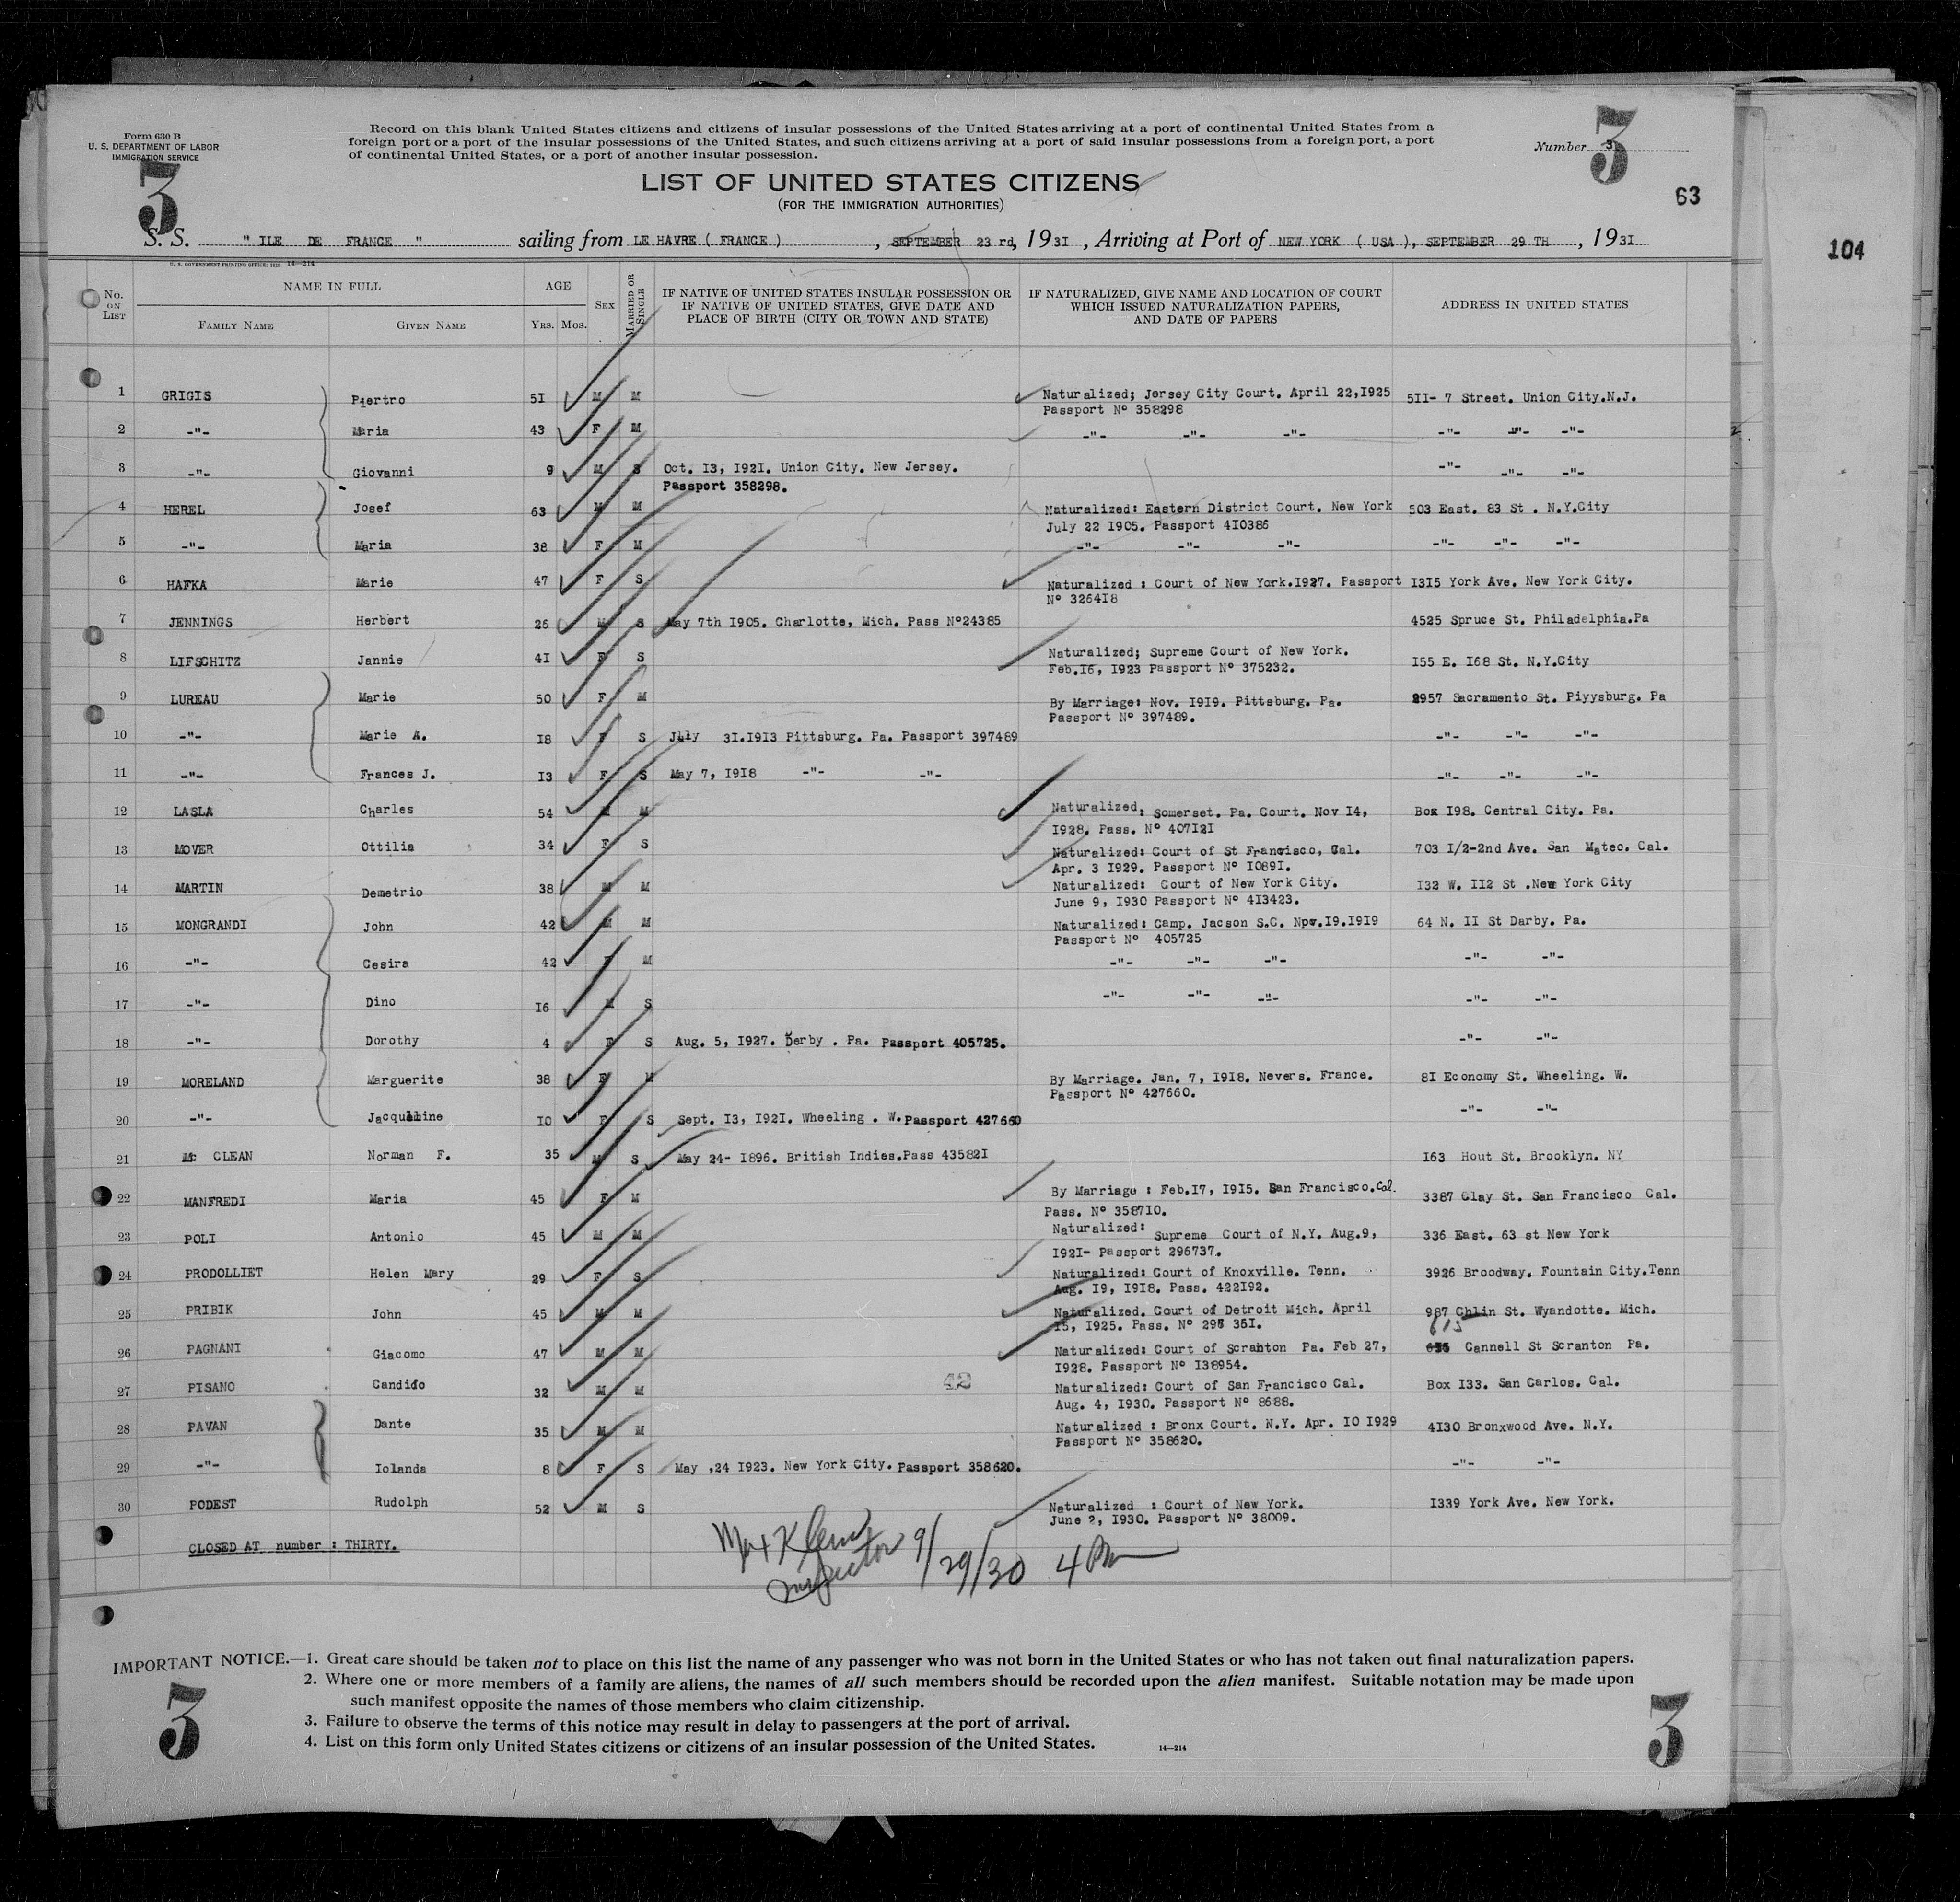 Form 630 B
U. S. DEPARTMENT OF LABOR
IMMIGRATION SERVICE
Record on this blank United States citizens and citizens of insular possessions of the United States arriving at a port of continental United States from a
foreign port or a port of the insular possessions of the United States, and such citizens arriving at a port of said insular possessions from a foreign port, a port
of continental United States, or a port of another insular possession.
Number 3
3
3
63
104
LIST OF UNITED STATES CITIZENS
(FOR THE IMMIGRATION AUTHORITIES)
S. S. " ILE DE FRANCE " sailing from LE HAVRE ( FRANCE ) , SEPTEMBER 23 rd, 1931 , Arriving at Port of NEW YORK ( USA ), SEPTEMBER 29 TH , 1931
U. S. GOVERNMENT PRINTING OFFICE: 14—214
No. ON LIST
NAME IN FULL
FAMILY NAME
GIVEN NAME
AGE
Yrs. Mos.
SEX
MARRIED OR SINGLE
IF NATIVE OF UNITED STATES INSULAR POSSESSION OR
IF NATIVE OF UNITED STATES, GIVE DATE AND
PLACE OF BIRTH (CITY OR TOWN AND STATE)
IF NATURALIZED, GIVE NAME AND LOCATION OF COURT
WHICH ISSUED NATURALIZATION PAPERS,
AND DATE OF PAPERS
ADDRESS IN UNITED STATES
1 GRIGIS Piertro 5I M M Naturalized; Jersey City Court. April 22,I925 5II- 7 Street. Union City.N.J.
Passport Nº 358298
2 -"- Maria 43 F M -"- -"- -"- -"- -"- -"-
3 -"- Giovanni 9 M S Oct. I3, I92I. Union City. New Jersey. -"- -"- -"-
Passport 358298.
4 HEREL Josef 63 M M Naturalized: Eastern District Court. New York 503 East. 83 St . N.Y.City
July 22 I905. Passport 4I0386
5 -"- Maria 38 F M -"- -"- -"- -"- -"- -"-
6 HAFKA Marie 47 F S Naturalized : Court of New York.I927. Passport I3I5 York Ave. New York City.
Nº 3264I8
7 JENNINGS Herbert 26 M S May 7th I905. Charlotte, Mich. Pass Nº24385 4525 Spruce St. Philadelphia.Pa
8 LIFSCHITZ Jannie 4I F S Naturalized; Supreme Court of New York. I55 E. I68 St. N.Y.City
Feb.I6, I923 Passport Nº 375232.
9 LUREAU Marie 50 F M By Marriage: Nov. I9I9. Pittsburg. Pa. 2957 Sacramento St. Piyysburg. Pa
Passport Nº 397489.
10 -"- Marie A. I8 F S July 3I.I9I3 Pittsburg. Pa. Passport 397489 -"- -"- -"-
11 -"- Frances J. I3 F S May 7, I9I8 -"- -"- -"- -"- -"-
12 LASLA Charles 54 M M Naturalized: Somerset. Pa. Court. Nov I4, Box I98. Central City. Pa.
I928. Pass. Nº 407I2I
13 MOVER Ottilia 34 F S Naturalized: Court of St Francisco, Cal. 703 I/2-2nd Ave. San Mateo. Cal.
Apr. 3 I929. Passport Nº I089I.
14 MARTIN Demetrio 38 M M Naturalized: Court of New York City. I32 W. II2 St .New York City
June 9, I930 Passport Nº 4I3423.
15 MONGRANDI John 42 M M Naturalized: Camp. Jacson S.C. Npv.I9.I9I9 64 N. II St Darby. Pa.
Passport Nº 405725
16 -"- Cesira 42 F M -"- -"- -"- -"- -"-
17 -"- Dino I6 M S -"- -"- -"- -"- -"-
18 -"- Dorothy 4 F S Aug. 5, I927. Derby . Pa. Passport 405725. -"- -"-
19 MORELAND Marguerite 38 F M By Marriage. Jan. 7, I9I8. Nevers. France. 8I Economy St. Wheeling. W.
Passport Nº 427660.
20 -"- Jacqueline I0 F S Sept. I3, I92I. Wheeling . W. Passport 427660 -"- -"-
21 Mc CLEAN Norman F. 35 M S May 24- I896. British Indies.Pass 43582I I63 Hout St. Brooklyn. NY
22 MANFREDI Maria 45 F M By Marriage : Feb.I7, I9I5. San Francisco.Cal. 3387 Clay St. San Francisco Cal.
Pass. Nº 3587I0.
23 POLI Antonio 45 M M Naturalized: Supreme Court of N.Y. Aug.9, 336 East. 63 st New York
I92I- Passport 296737.
24 PRODOLLIET Helen Mary 29 F S Naturalized: Court of Knoxville. Tenn. 3926 Broodway. Fountain City.Tenn
Aug. I9, I9I8. Pass. 422I92.
25 PRIBIK John 45 M M Naturalized. Court of Detroit Mich. April 987 Chlin St. Wyandotte. Mich.
I5, I925. Pass. Nº 35I.
615
26 PAGNANI Giacomo 47 M M Naturalized: Court of Scranton Pa. Feb 27, Cannell St Scranton Pa.
I928. Passport Nº I38954.
27 PISANO Candido 32 M M 42 Naturalized: Court of San Francisco Cal. Box I33. San Carlos. Cal.
Aug. 4, I930. Passport Nº 8688.
28 PAVAN Dante 35 M M Naturalized : Bronx Court. N.Y. Apr. I0 I929 4I30 Bronxwood Ave. N.Y.
Passport Nº 358620.
29 -"- Iolanda 8 F S May ,24 I923. New York City. Passport 358620. -"- -"-
30 PODEST Rudolph 52 M S Naturalized : Court of New York. I339 York Ave. New York.
June 2, I930. Passport Nº 38009.
CLOSED AT number : THIRTY.
Max Klein
Inspector 9/29/30 4 PM
IMPORTANT NOTICE.—1. Great care should be taken not to place on this list the name of any passenger who was not born in the United States or who has not taken out final naturalization papers.
2. Where one or more members of a family are aliens, the names of all such members should be recorded upon the alien manifest. Suitable notation may be made upon
such manifest opposite the names of those members who claim citizenship.
3. Failure to observe the terms of this notice may result in delay to passengers at the port of arrival.
4. List on this form only United States citizens or citizens of an insular possession of the United States.
14—214
3
3